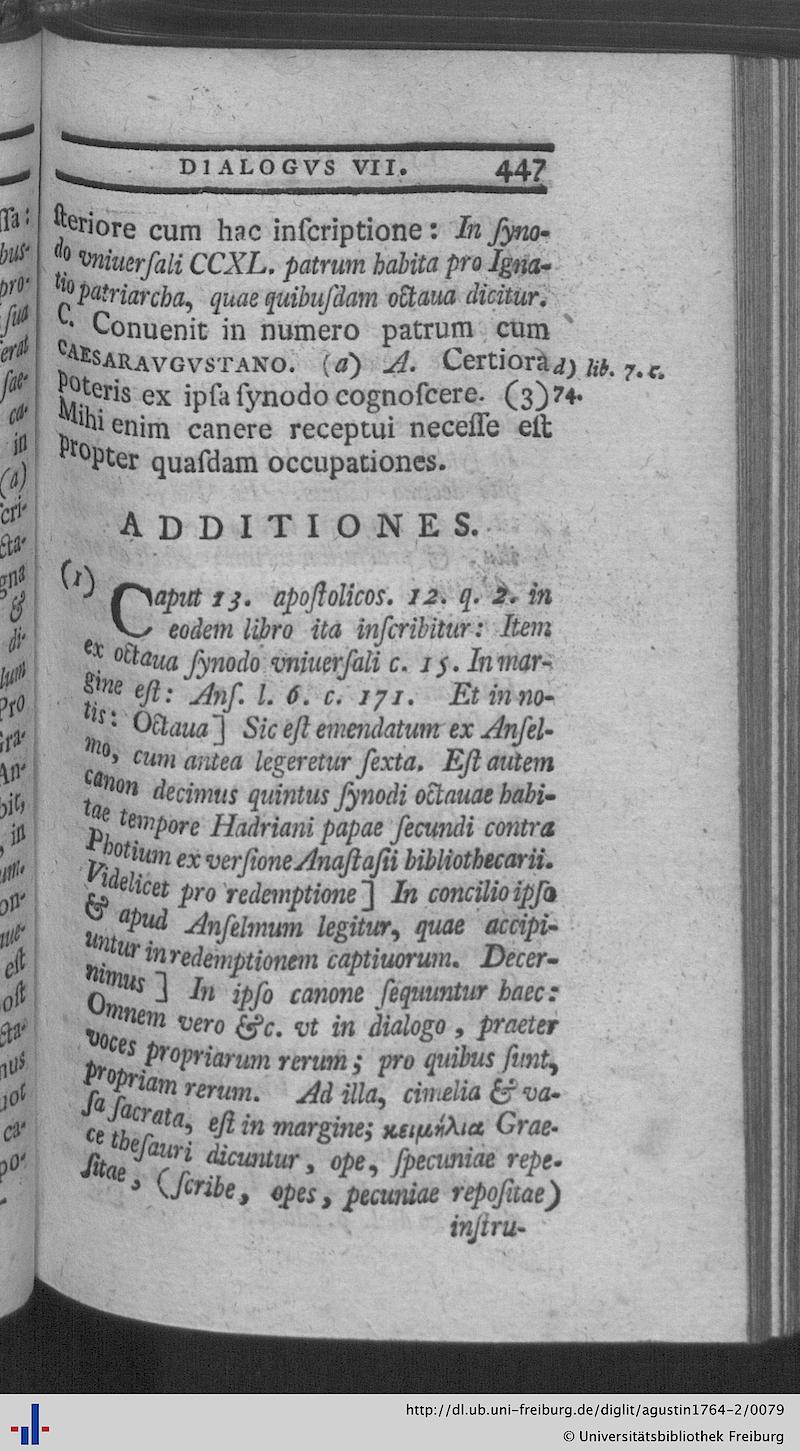 DIALOGVS VII. 447
ſteriore cum hac inſcriptione: In ſyno-
do vniuerſali CCXL. patrum habita pro Igna-
tio patriarcha, quae quibuſdam octaua dicitur.
C. Conuenit in numero patrum cum
CAESARAVGVSTANO. (a) A. Certiora
poteris ex ipſa ſynodo cognoſcere. (3)
d) lib. 7. c.
74.
Mihi enim canere receptui neceſſe eſt
propter quaſdam occupationes.
ADDITIONES.
(1) Caput 13. apoſtolicos. 12. q. 2. in
eodem libro ita inſcribitur: Item
ex octaua ſynodo vniuerſali c. 15. In mar-
gine eſt: Anſ. l. 6. c. 171. Et in no-
tis: Octaua] Sic eſt emendatum ex Anſel-
mo, cum antea legeretur ſexta. Eſt autem
canon decimus quintus ſynodi octauae habi-
tae tempore Hadriani papae ſecundi contra
Photium ex verſione Anaſtaſii bibliothecarii.
Videlicet pro redemptione] In concilio ipſo
& apud Anſelmum legitur, quae accipi-
untur in redemptionem captiuorum. Decer-
nimus] In ipſo canone ſequuntur haec:
Omnem vero &c. vt in dialogo, praeter
voces propriarum rerum; pro quibus ſunt,
propriam rerum. Ad illa, cimelia & va-
ſa ſacrata, eſt in margine; κειμήλια Grae-
ce theſauri dicuntur, ope, ſpecuniae repe-
ſitae, (ſcribe, opes, pecuniae repoſitae)
inſtru-
ſſa:
bus-
pro-
ſua
erat
ſae-
ca-
in
(a)
ſcri-
cta-
gna
&
di-
lum
Pro
An-
bit,
in
um.
on-
nue-
eſt
oſt
cta-
nus
uot
ca-
po-
http://dl.ub.uni-freiburg.de/diglit/agustin1764-2/0079
© Universitätsbibliothek Freiburg